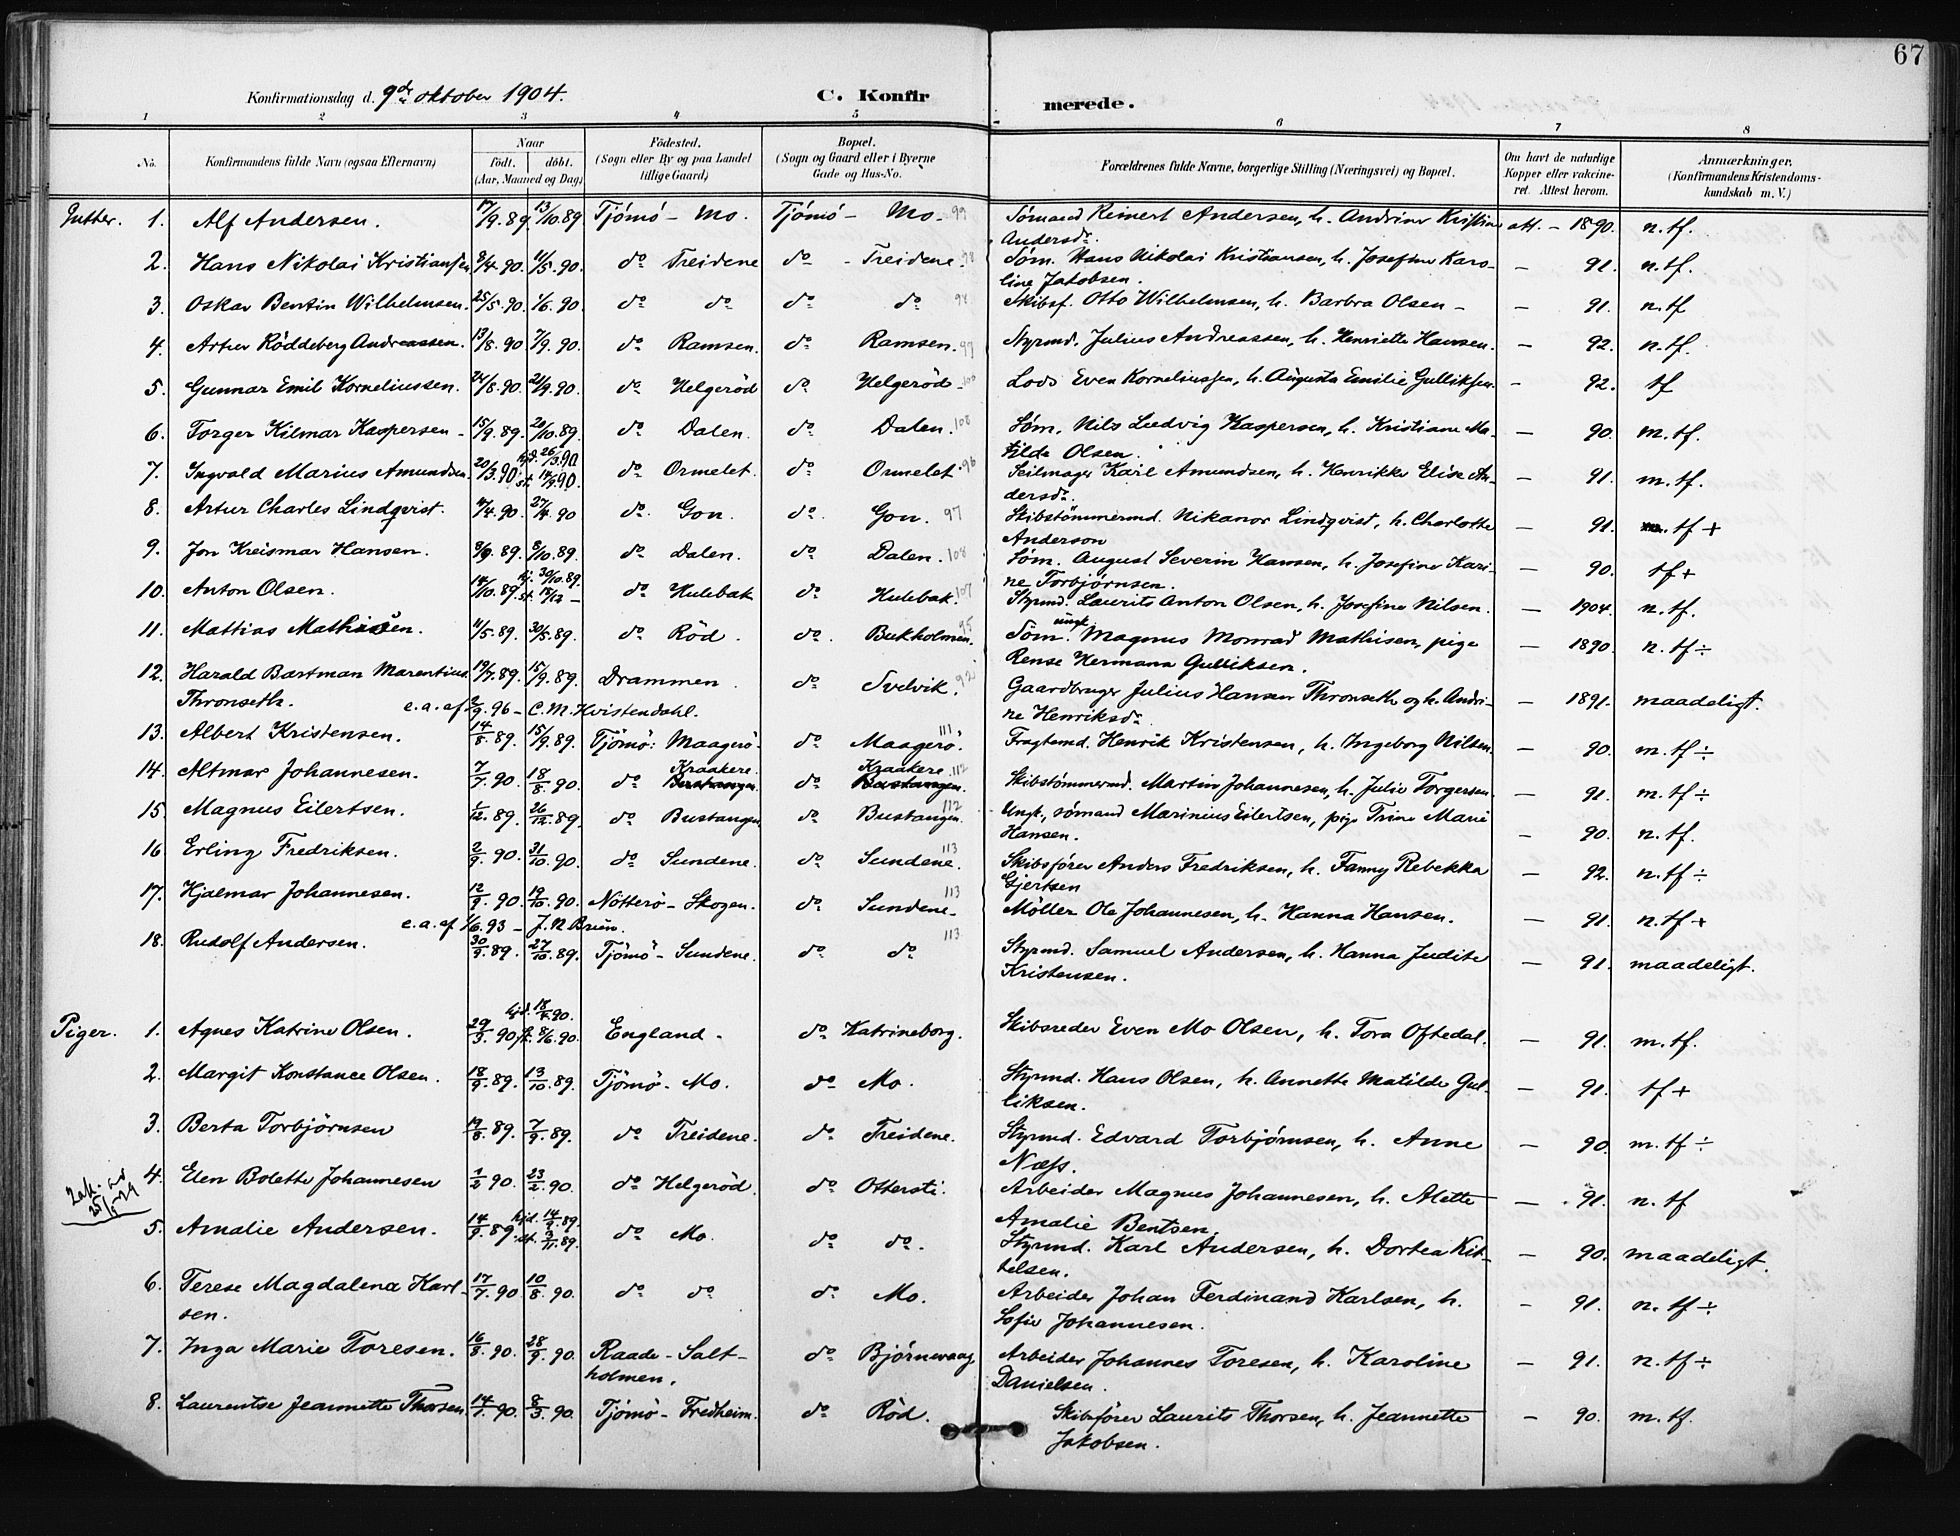 67
Konfirmationsdag d. 9de oktober 1904. C. Konfirmerede.
1 2 3 4 5 6 7 8
No. Konfirmandens fulde Navn (ogsaa Efternavn) Naar født. døbt. (Aar, Maaned og Dag) Fødested. (Sogn eller By og paa Landet tillige Gaard) Bopæl. (Sogn og Gaard eller i Byerne Gade og Hus-No. Forældrenes fulde Navne, borgerlige Stilling (Næringsvei) og Bopæl. Om havt de naturlige Kopper eller vakcineret. Attest herom. Anmærkninger. (Konfirmandens Kristendomskundskab m. V.)
Gutter. 1. Alf Andersen. 17/9.89. 13/10.89 Tjömö - Mo. Tjömö - Mo. 99 Sömand Reinert Andersen, h. Andrine Kristine Andersdr. att. - 1890. n. tf.
2. Hans Nikolai Kristiansen 8/4.90. 11/5.90. do Treidene do - Treidene. 98 Söm. Hans Nikolai Kristiansen, h. Josefine Karoline Jakobsen. - 91. n. tf.
3. Oskar Bentin Wilhelmsen. 25/5.90. 1/6.90. do do do do 94 Skibsf. Otto Wilhelmsen, h. Barbra Olsen - - 91. n. tf
4. Artur Röddeberg Andreassen. 13/8.90 7/9.90. do Ramsen. do Ramsen. 99 Styrmd. Julius Andreassen, h. Henriette Hansen. - 92. n. tf.
5. Gunnar Emil Korneliussen. 24/8.90. 21/9.90. do Helgeröd do Helgeröd 100 Lods Even Korneliussen, h. Augusta Emilie Gulliksen. - 92. tf
6. Torger Hilmar Kaspersen - 15/9.89. 20/10.89. do Dalen. do Dalen. 108 Söm. Nils Ludvig Kaspersen, h. Kristiane Matilde Olsen. - 90. m. tf.
7. Ingvald Marius Amundsen. 20/3.90. hjd. 26/3.90 st. 14/9.90. do Ormelet. do Ormelet. 96 Seilmager Karl Amundsen, h. Henrikke Elise Andersdr. - 91. m. tf.
8. Artur Charles Lindqvist. 4/4.90. 27/4.90 do. Gon. do. Gon. 97 Skibstömmermd. Nikanor Lindqvist, h. Charlotte Anderson - 91. tf +
9. Jon Kreismar Hansen. 8/9.89. 8/10.89. do Dalen. do Dalen. 108 Söm. August Severin Hansen, h. Josefine Karine Torbjörnsen. - 90. tf +
10. Anton Olsen. 14/10.89. hj. 30/10.89. st. 18/12 - do Hulebak do Hulebak. 107 Styrmd. Laurits Anton Olsen, h. Josefine Nilsen. - 1904. n. tf.
11. Mattias Mathisen. 11/5.89. 30/5.89. do Röd. do. Bukholmen. 95 Söm. ungk. Magnus Monrad Mathisen, pige Rense Hermana Gulliksen. - 1890. n. tf ÷
12. Harald Bartman Marentius Thronseth. 19/7.89. 15/9.89. Drammen. do Svelvik. 92 Gaardbruger Julius Hansen Thronseth og h. Andrine Henriksdr. - 1891. maadeligt.
e. a. af 2/9.96 - C. M. Hvistendahl.
13. Albert Kristensen. 14/8.89. 15/9.89. Tjömö: Maagerö. do Maagerö. 111 Fragtemd. Henrik Kristensen, h. Ingeborg Nilsen. - 90. m. tf ÷
14. Altmar Johannesen. 7/7.90. 18/8.90. do Kraakere. Bustangen. do Kraakere. 112 Bustangen. Skibstömmermd. Martin Johannesen, h. Julie Torgersen. - 91. m. tf ÷
15. Magnus Eilertsen. 1/12.89. 26/12.89. do Bustangen. do Bustangen. 112 Ungk., sömand Marinius Eilertsen, pige Trine Marie Hansen. - 90. n. tf.
16. Erling Fredriksen. 2/9.90. 31/10.90. do Sundene. do Sundene. 113 Skibsförer Anders Fredriksen, h. Fanny Rebekka Gjertsen - 92. n. tf ÷
17. Hjalmar Johannesen. 12/9.90. 19/10.90. Nötterö - Skogen. do Sundene - 113 Möller Ole Johannesen, h. Hanna Hansen. - 91. n. tf +
e. a. af 1/6.93 - J. N. Brün.
18. Rudolf Andersen. 30/9.89. 27/10.89. Tjömö - Sundene. do do. 113 Styrmd. Samuel Andersen, h. Hanna Judite Kristensen. - 91. maadeligt.
Piger. 1. Agnes Katrine Olsen. 29/3.90 hjd. 18/4.90. 8/6.90. England - do Katrineborg. Skibsreder Even Mo Olsen, h. Tora Oftedal. - 91. m. tf.
2. Margit Konstance Olsen. 18/9.89. 13/10.89. Tjömö - Mo. do Mo. Styrmd. Hans Olsen, h. Annette Matilde Gulliksen. - 91. tf +
3. Berta Torbjörnsen 19/8.89. 7/9.89. do Treidene. do Treidene. Styrmd. Edvard Torbjörnsen, h. Anne Næss. - 90. m. tf ÷
4. Elen Bolette Johannesen 1/2.90. 23/2.90. do Helgeröd. do Ottersti. Arbeider Magnus Johannesen, h. Alette Amalie Bentsen. - 91. n. tf
5. Amalie Andersen. 14/9.89. hjd. 14/9.89. st. 3/11.89. do Mo. do do. Styrmd. Karl Andersen, h. Dortea Kittelsen. - 90. maadeligt.
6. Terese Magdalena Karlsen. 17/7.90. 10/8.90. do do do Mo. Arbeider Johan Ferdinand Karlsen, h. Sofie Johannesen. - 91. n. tf ÷
7. Inga Marie Toresen. 16/8.90. 28/9.90. Raade - Saltholmen. do Björnevaag Arbeider Johannes Toresen, h. Karoline Danielsen. - 91. n. tf ÷
8. Laurentse Jeannette Thorsen. 14/1.90. 8/3.90. Tjömö - Fredheim. do Röd. Skibsförer Laurits Thorsen, h. Jeannette Jakobsen. - 90. m. tf.